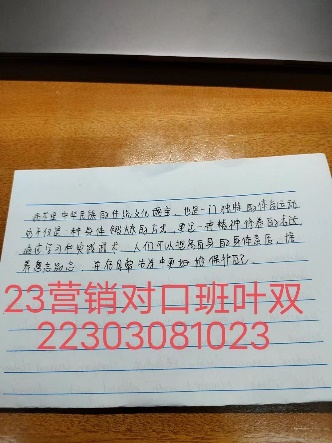 武术是中华民族的传统文化瑰宝，也是一门独特的体育运动
它不仅是一种身体锻炼的方式，更是一种精神修养的表达
通过学习和实践武术，人们可以提高自身的身体素质，培
养意志品质，并在日常生活中更好的保护自己。
23营销对口班叶双
22303081023